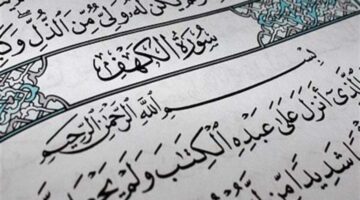 لَّهُ وَلِيٌّ مِّنَ الذُّلِّ وَكَ
سُورَةُ الكَهْفِ
بِسْمِ اللَّهِ الرَّحْمَٰنِ الرَّحِيمِ
لَّذِي أَنزَلَ عَلَىٰ عَبْدِهِ الْكِتَابَ وَلَمْ يَجْعَل
شَدِيدًا مِّن